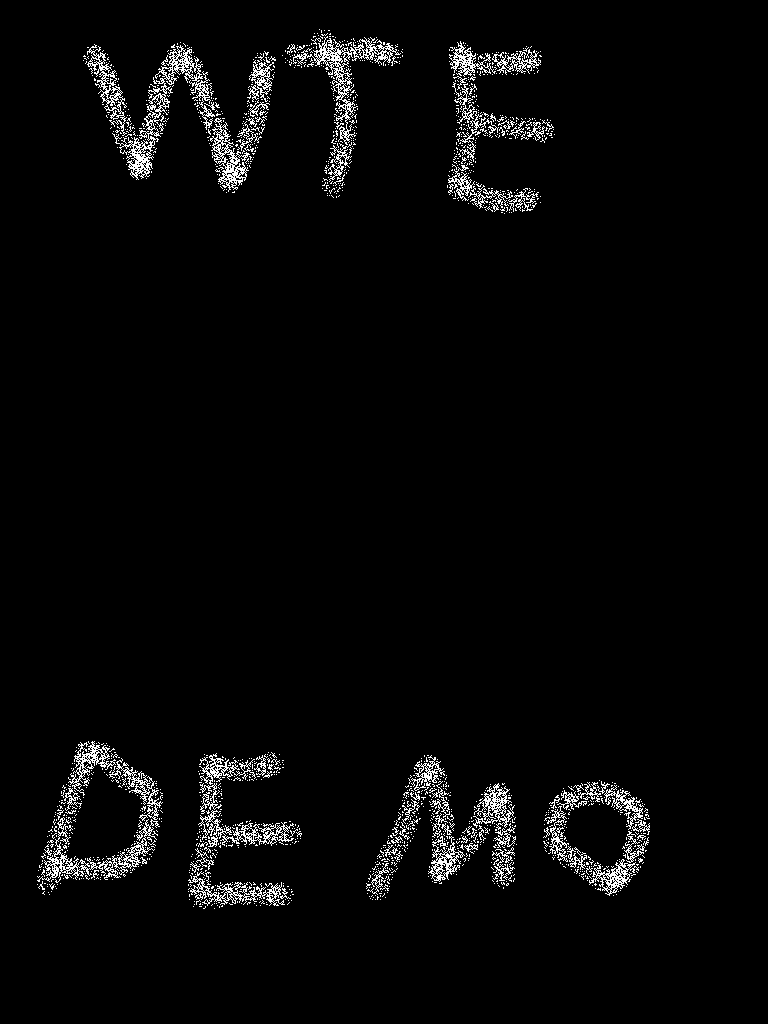 WTE
DEMO